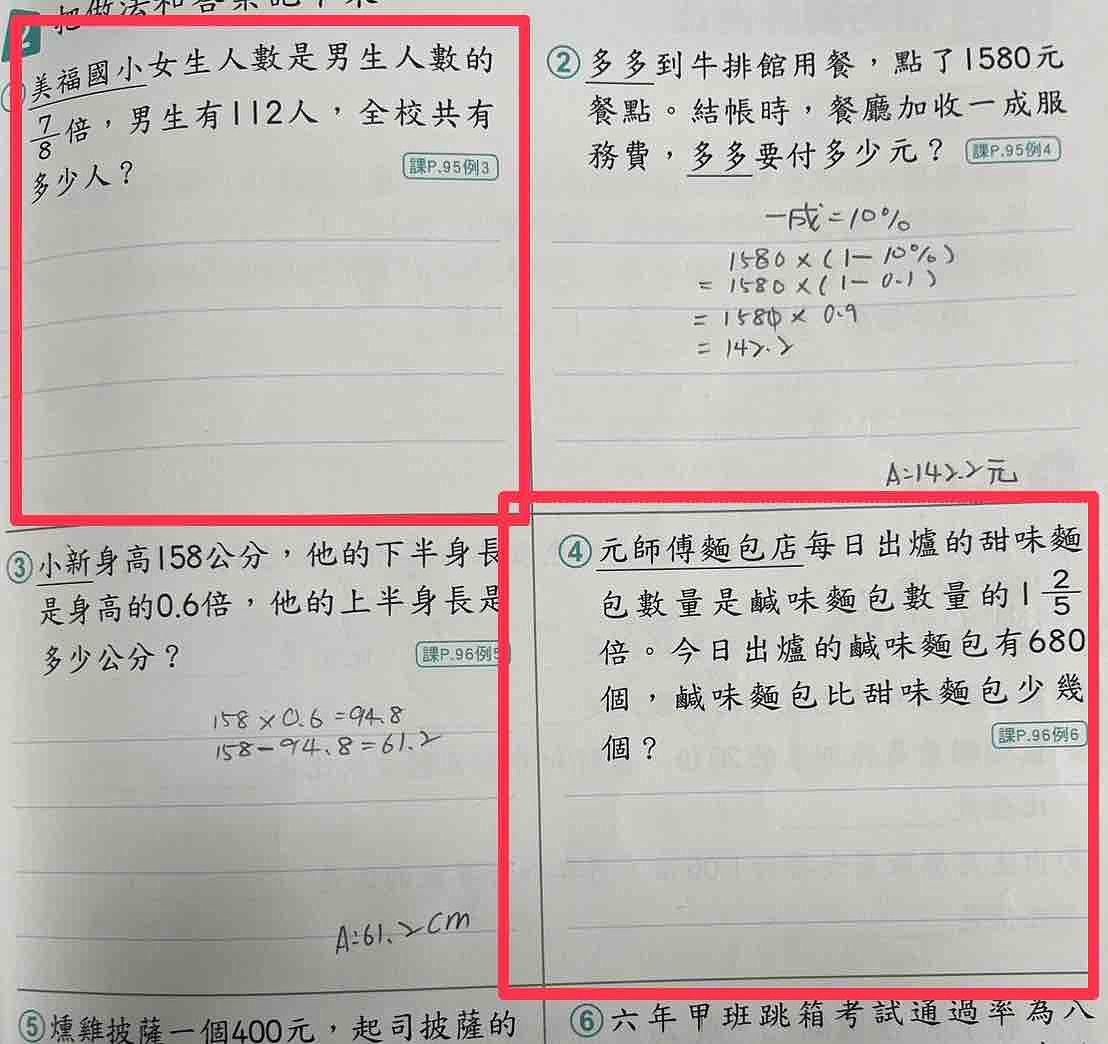 2 把做法和答案記下來
①美福國小女生人數是男生人數的
7/8倍，男生有112人，全校共有
多少人？
課P.95例3
②多多到牛排館用餐，點了1580元
餐點。結帳時，餐廳加收一成服
務費，多多要付多少元？ 課P.95例4
一成=10%
1580×(1-10%)
=1580×(1-0.1)
=1580×0.9
=142.2
A:142.2元
③小新身高158公分，他的下半身長
是身高的0.6倍，他的上半身長是
多少公分？
課P.96例5
158×0.6=94.8
158-94.8=61.2
A:61.2cm
④元師傅麵包店每日出爐的甜味麵
包數量是鹹味麵包數量的1 2/5
倍。今日出爐的鹹味麵包有680
個，鹹味麵包比甜味麵包少幾
個？
課P.96例6
⑤燻雞披薩一個400元，起司披薩的
⑥六年甲班跳箱考試通過率為八